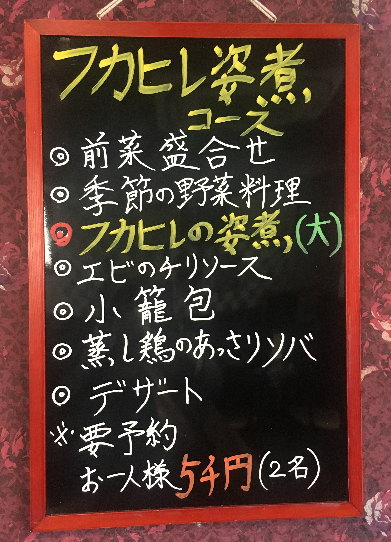 フカヒレ姿煮
コース
◎ 前菜盛合せ
◎ 季節の野菜料理
◎ フカヒレの姿煮(大)
◎ エビのチリソース
◎ 小籠包
◎ 蒸し鶏のあっさりソバ
◎ デザート
※ 要予約
お一人様 5千円(2名)